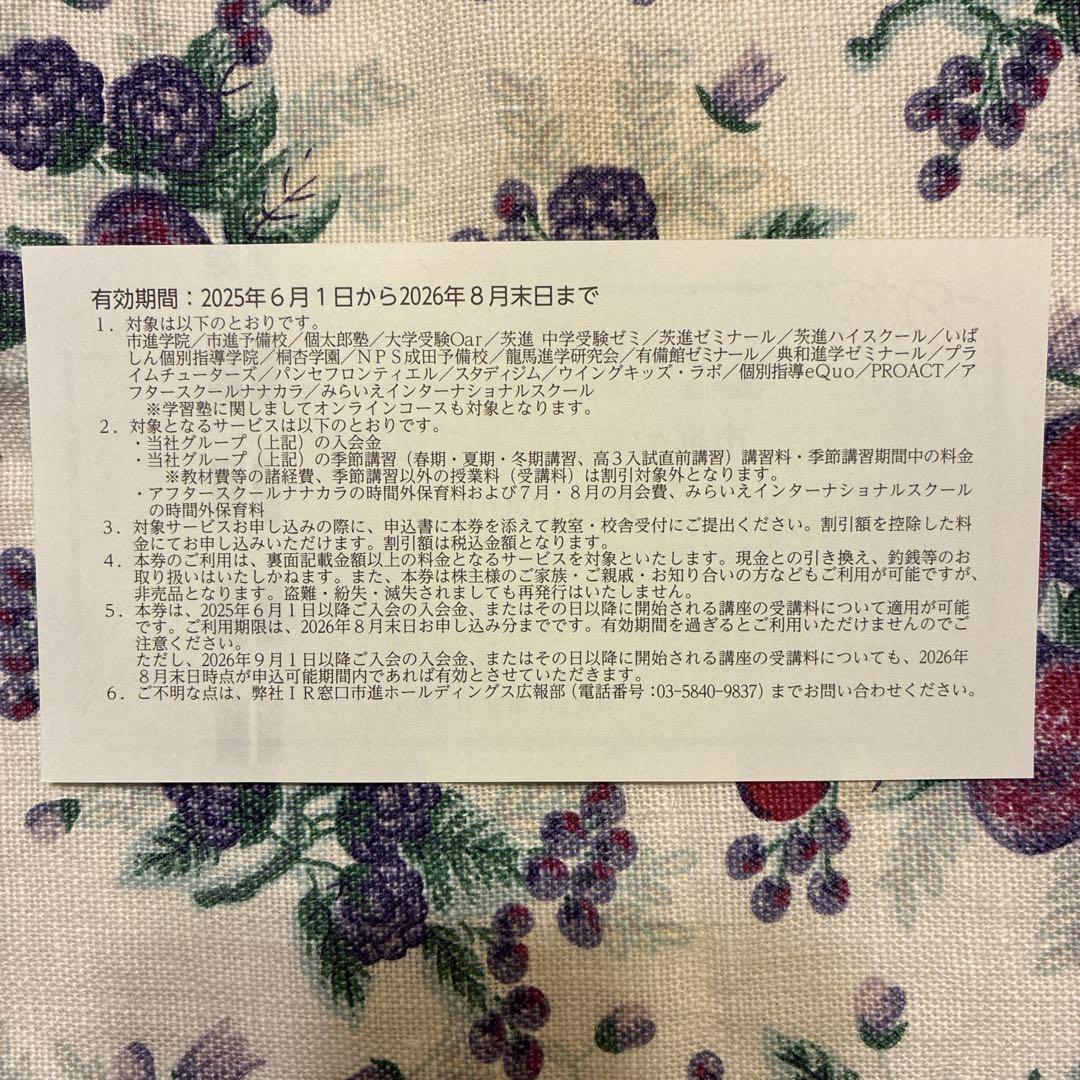 有効期間：2025年６月１日から2026年８月末日まで
１．対象は以下のとおりです。
市進学院／市進予備校／個太郎塾／大学受験Oar／茨進 中学受験ゼミ／茨進ゼミナール／茨進ハイスクール／いば
しん個別指導学院／桐杏学園／ＮＰＳ成田予備校／龍馬進学研究会／有備館ゼミナール／典和進学ゼミナール／プラ
イムチューターズ／パンセフロンティエル／スタディジム／ウイングキッズ・ラボ／個別指導eQuo／PROACT／ア
フタースクールナナカラ／みらいえインターナショナルスクール
※学習塾に関しましてオンラインコースも対象となります。
２．対象となるサービスは以下のとおりです。
・当社グループ（上記）の入会金
・当社グループ（上記）の季節講習（春期・夏期・冬期講習、高３入試直前講習）講習料・季節講習期間中の料金
※教材費等の諸経費、季節講習以外の授業料（受講料）は割引対象外となります。
・アフタースクールナナカラの時間外保育料および７月・８月の月会費、みらいえインターナショナルスクール
の時間外保育料
３．対象サービスお申し込みの際に、申込書に本券を添えて教室・校舎受付にご提出ください。割引額を控除した料
金にてお申し込みいただけます。割引額は税込金額となります。
４．本券のご利用は、裏面記載金額以上の料金となるサービスを対象といたします。現金との引き換え、釣銭等のお
取り扱いはいたしかねます。また、本券は株主様のご家族・ご親戚・お知り合いの方などもご利用が可能ですが、
非売品となります。盗難・紛失・滅失されましても再発行はいたしません。
５．本券は、2025年６月１日以降ご入会の入会金、またはその日以降に開始される講座の受講料について適用が可能
です。ご利用期限は、2026年８月末日お申し込み分までです。有効期間を過ぎるとご利用いただけませんのでご
注意ください。
ただし、2026年９月１日以降ご入会の入会金、またはその日以降に開始される講座の受講料についても、2026年
８月末日時点が申込可能期間内であれば有効とさせていただきます。
６．ご不明な点は、弊社ＩＲ窓口市進ホールディングス広報部（電話番号：03-5840-9837）までお問い合わせください。